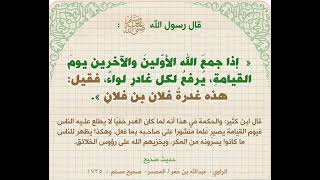 قال رسول الله ﷺ :
« إذا جمعَ الله الأوّلينَ والآخرين يومَ
القيامةِ، يُرفعُ لكل غادرٍ لواءٌ، فقيل:
هذه غدرةُ فلان بن فلانٍ ».
قال ابن كثير: والحكمة في هذا أنه لما كان الغدر خفيًا لا يطلع عليه الناس
فيوم القيامة يصير علما منشورا على صاحبه بما فعل، وهكذا يظهر للناس
ما كانوا يسرونه من المكر، ويخزيهم الله على رؤوس الخلائق.
حديث صحيح
الراوي: عبدالله بن عمر/ المصدر: صحيح مسلم : ١٧٣٥